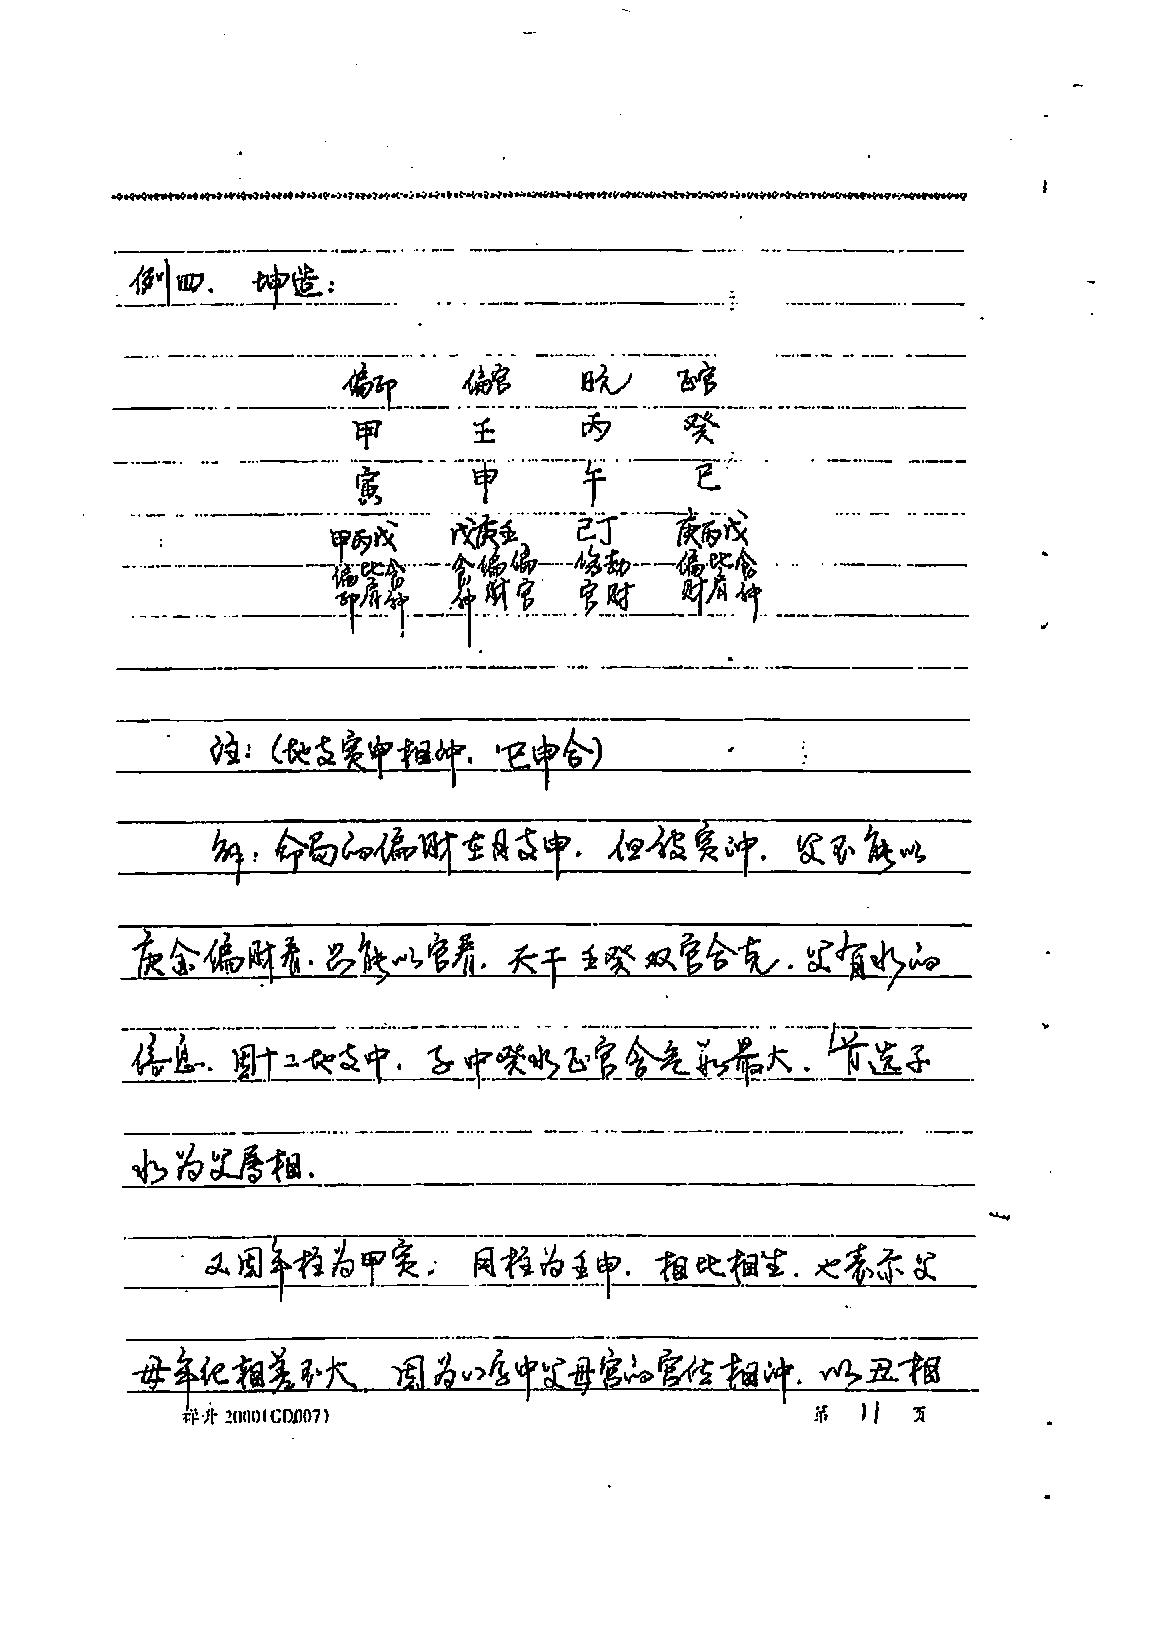 例四. 坤造:
偏印 偏官 日元 正官
甲 壬 丙 癸
寅 申 午 巳
甲丙戊 戊庚壬 己丁 庚丙戊
偏比食 食偏偏 伤劫 偏比食
印肩神 神财官 官财 财肩神
注:(地支寅申相冲. 巳申合)
解: 命局的偏财在月支申. 但被寅冲. 父不能以
庚金偏财看. 只能以官看. 天干壬癸双官合克. 父有水的
信息. 因十二地支中. 子中癸水正官含气最大. 首选子
水为父属相.
又因年柱为甲寅; 月柱为壬申. 相比相生. 也表示父
母年纪相差不大. 因为八字中父母宫的宫位相冲. 以丑相
祥升 2000(CD007) 第 11 页